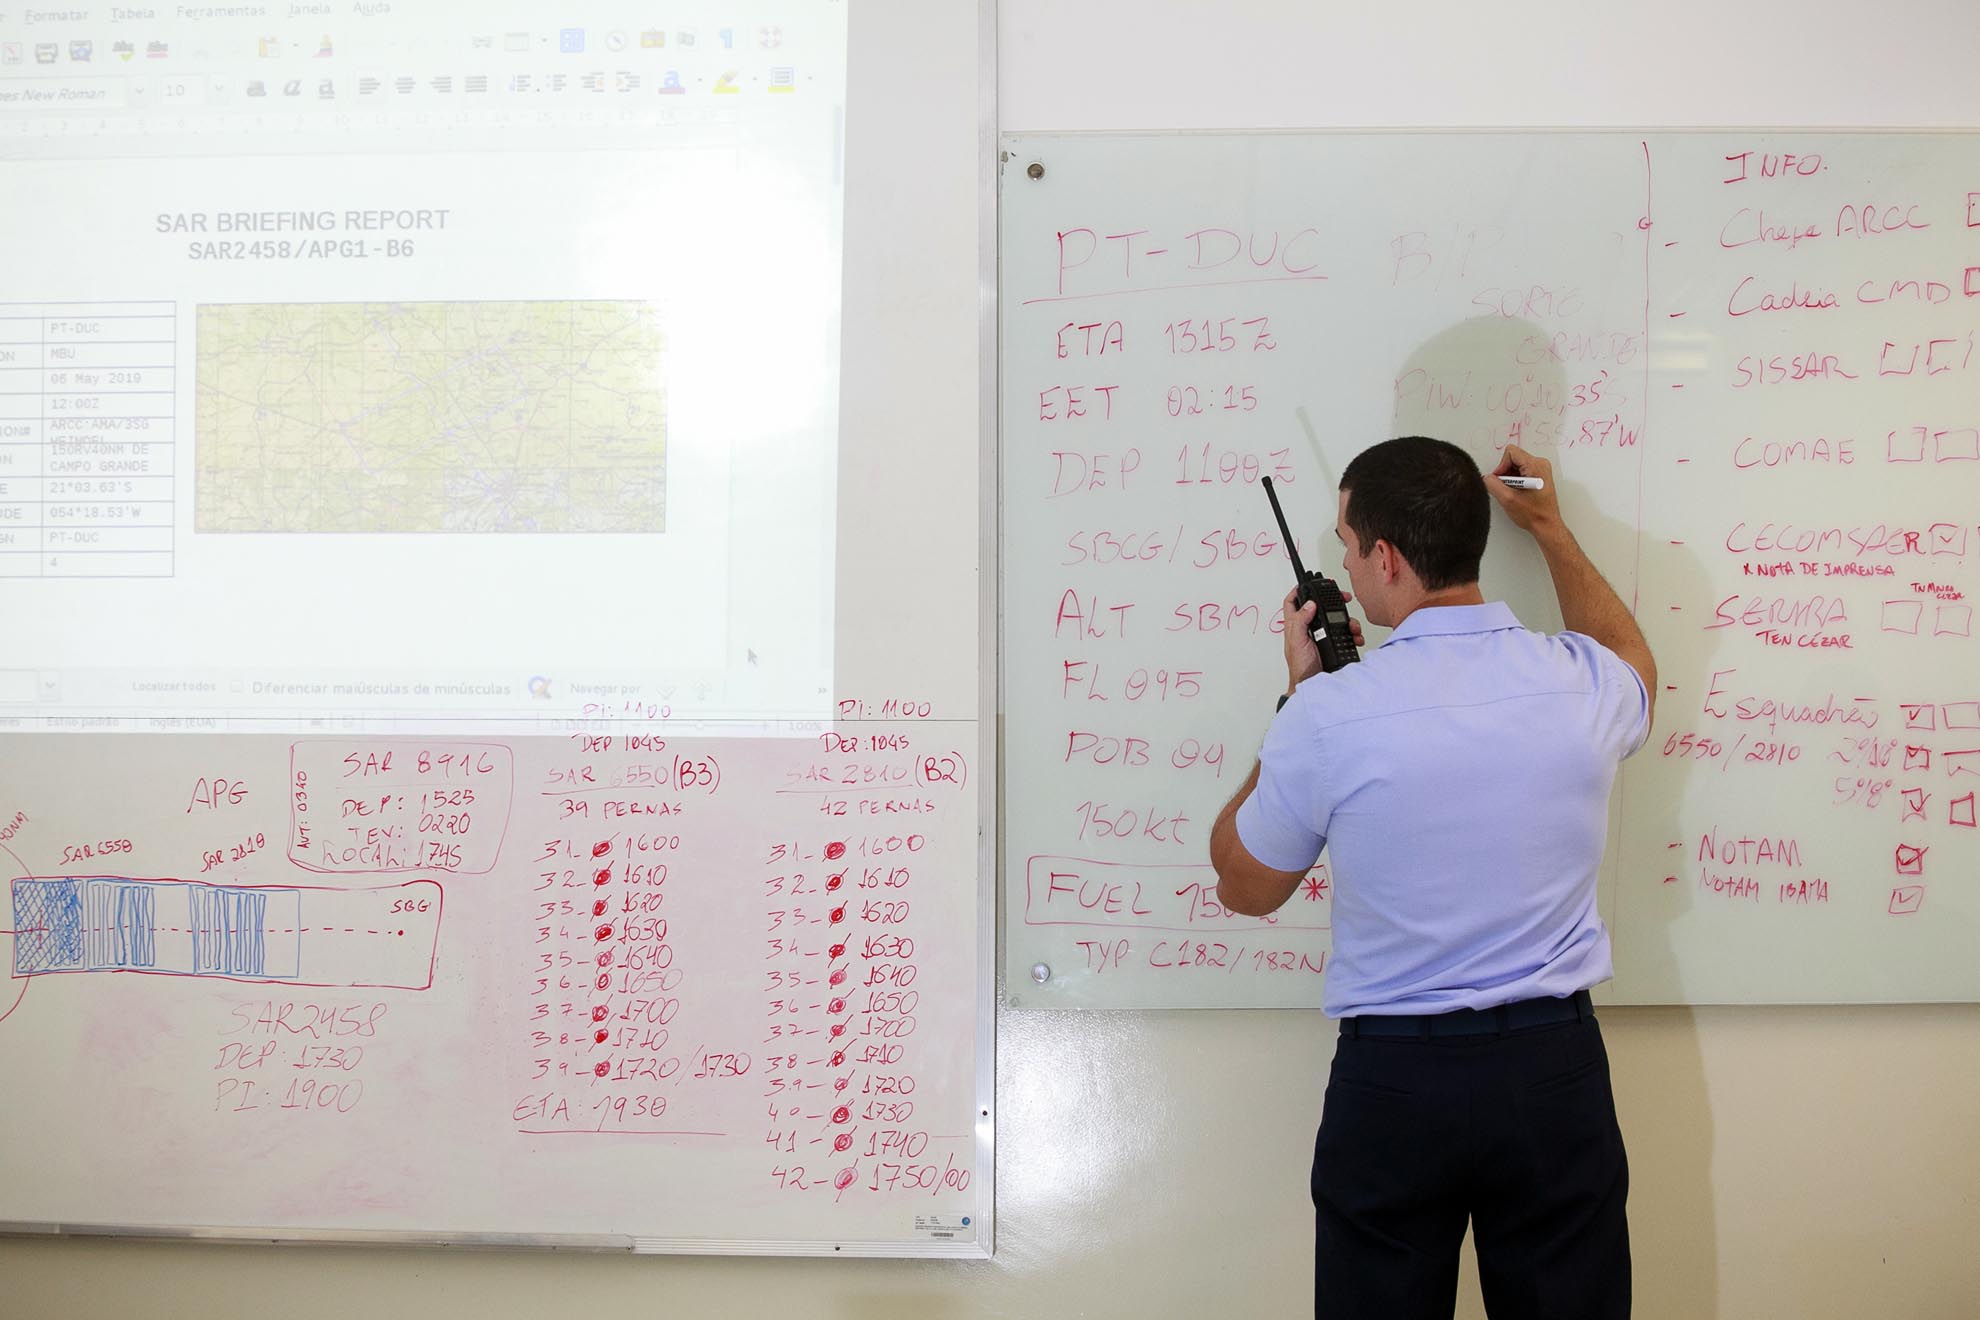 Formatar Tabela Ferramentas Janela Ajuda
New Roman 10
SAR BRIEFING REPORT
SAR2458/APG1-B6
PT-DUC
MBU
06 May 2019
12:00Z
ARCC:AMA/3SG
150RV40NM DE
CAMPO GRANDE
21°03.63'S
054°18.53'W
PT-DUC
4
Localizar todos Diferenciar maiúsculas de minúsculas Navegar por
Estilo padrão Inglês (EUA) 100%
APG
SAR 8916
DEP: 1525
TEV: 0220
LOCAL: 1745
AUT: 0310
SAR 6550
SAR 2810
SBG
SAR2458
DEP: 1730
PI: 1900
PI: 1100
DEP 1045
SAR 6550 (B3)
39 PERNAS
31- 1600
32- 1610
33- 1620
34- 1630
35- 1640
36- 1650
37- 1700
38- 1710
39- 1720/1730
ETA: 1930
PI: 1100
DEP: 1045
SAR 2810 (B2)
42 PERNAS
31- 1600
32- 1610
33- 1620
34- 1630
35- 1640
36- 1650
37- 1700
38- 1710
39- 1720
40- 1730
41- 1740
42- 1750/00
PT-DUC
ETA 1315Z
EET 02:15
DEP 1100Z
SBCG/SBG
ALT SBMG
FL 095
POB 04
150kt
FUEL 150 *
TYP C182/182N
SORTE
GRANDE
PIW: 00°10,35'S
55,87'W
INFO.
- Chefe ARCC
- Cadeia CMD
- SISSAR
- COMAE
- CECOMSAER
NOTA DE IMPRENSA
- SERIPA
TEN CÉZAR
- Esquadrão
6550/2810 2º/10º
5º/8º
- NOTAM
- NOTAM IBAMA